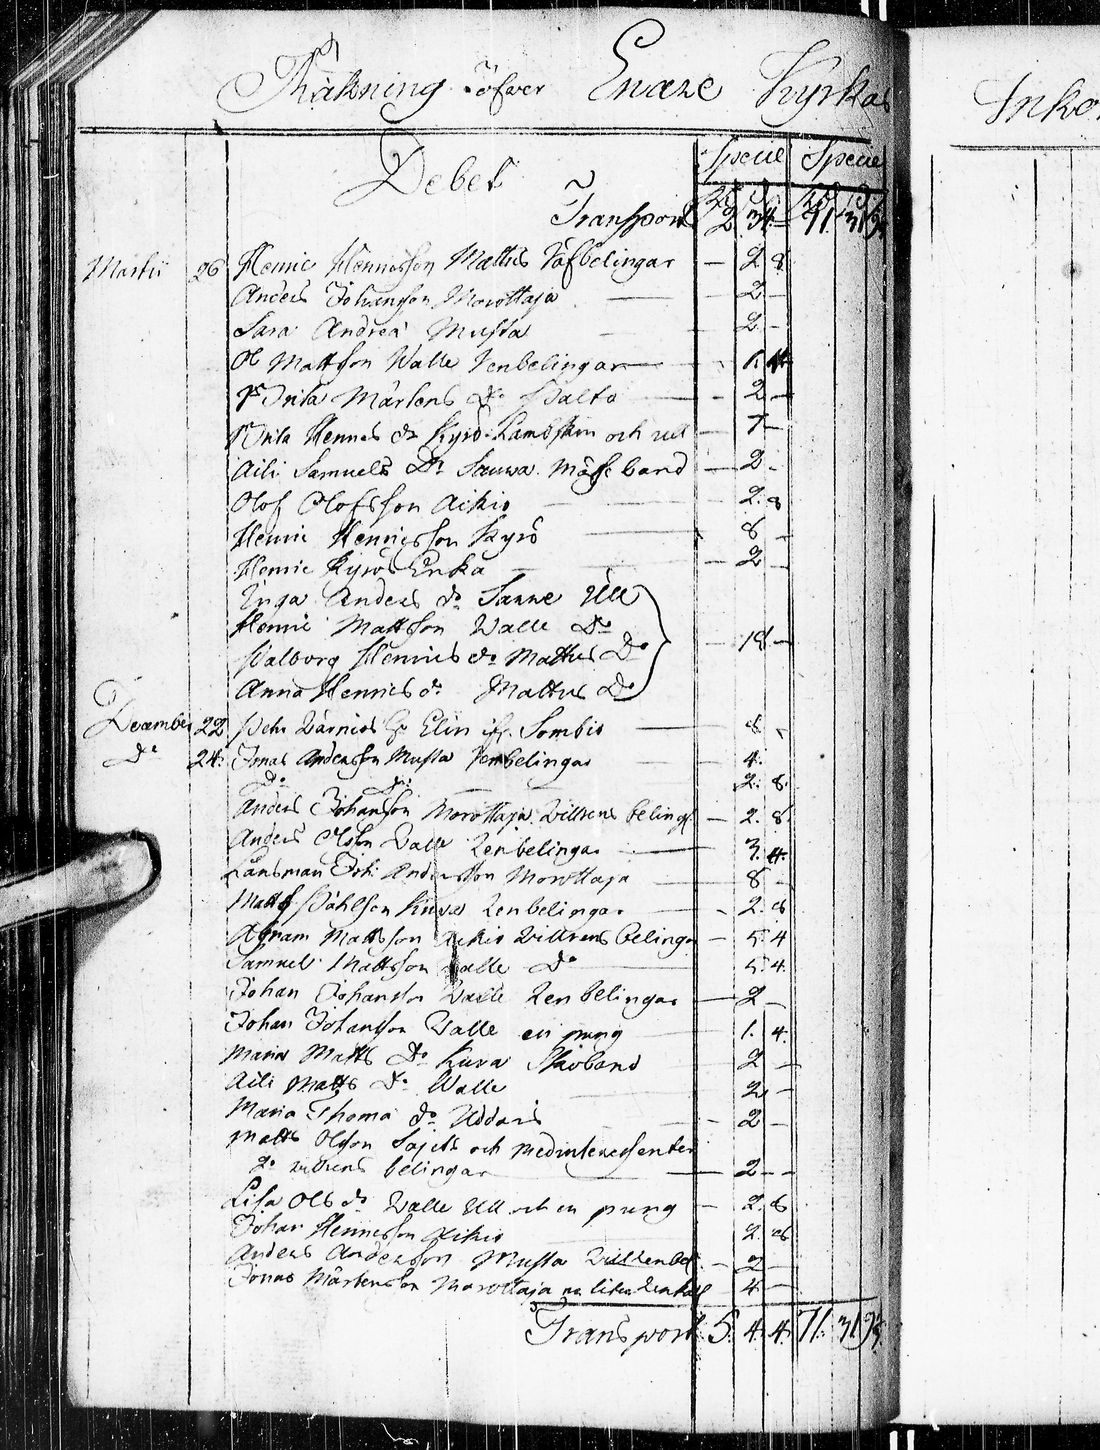 Räkning öfver Enare Kyrkas
Inko
Debet Specie Specie
Transport 2 34 71 31
Martii 26 Henric Hennesson Mattus Räfbelingar — 2 8
Anders Johansson Morottaja — 2 —
Sara Andreæ Musta — 2 —
Ol Mattson Walle Renbelingar — 1. 4
Brita Mårtens Do Palto — 2 —
Brita Hennes do Kyrö Lambskin och ull — 7 —
Aili Samuels Do Sauwa Mösseband — 2 —
Olof Olofsson Aikio — 2. 8
Henric Hennesson Kyrö — 8 —
Henric Kyrös Enka — 2 —
Inga Anders do Sanne Ull
Henric Mattsson Walle Do — 18 —
Walborg Henrics do Mattus Do
Anna Henrics do Mattus Do
December 22 Pehr Wärniös Elin Sombio — 8
Do 24. Jonas Andersson Musta Renbelingar — 4.
Do Do — 2. 8.
Anders Johansson Morottaja Willrens beling — 2. 8.
Anders Olsson Walle Renbelingar — 3. 4.
Länsman Joh: Andersson Morottaja — 8 —
Matts Påhlson Kuva Renbelingar — 2. 8
Abram Mattsson Aikio Willrens belingar — 5. 4
Samuel Mattsson Walle Do — 5. 4.
Johan Johansson Walle Renbelingar — 2 —
Johan Johansson Walle en pung — 1. 4.
Maria Matts Do Kuva Skoband — 2 —
Aili Matts Do Walle — 2 —
Maria Thomæ do Uddaris — 2 —
Matts Olsson Sajett och Medinteressenter
Do willrens belingar — 2 — —
Lisa Ols do Walle Ull och en pung — 2. 8
Johan Hennesson Aikio — 2. 8
Anders Andersson Musta Willrenbel. — 2 —
Jonas Mårtensson Morottaja en liten Renkalf — 4 —
Transport 5. 4. 4. 71. 31